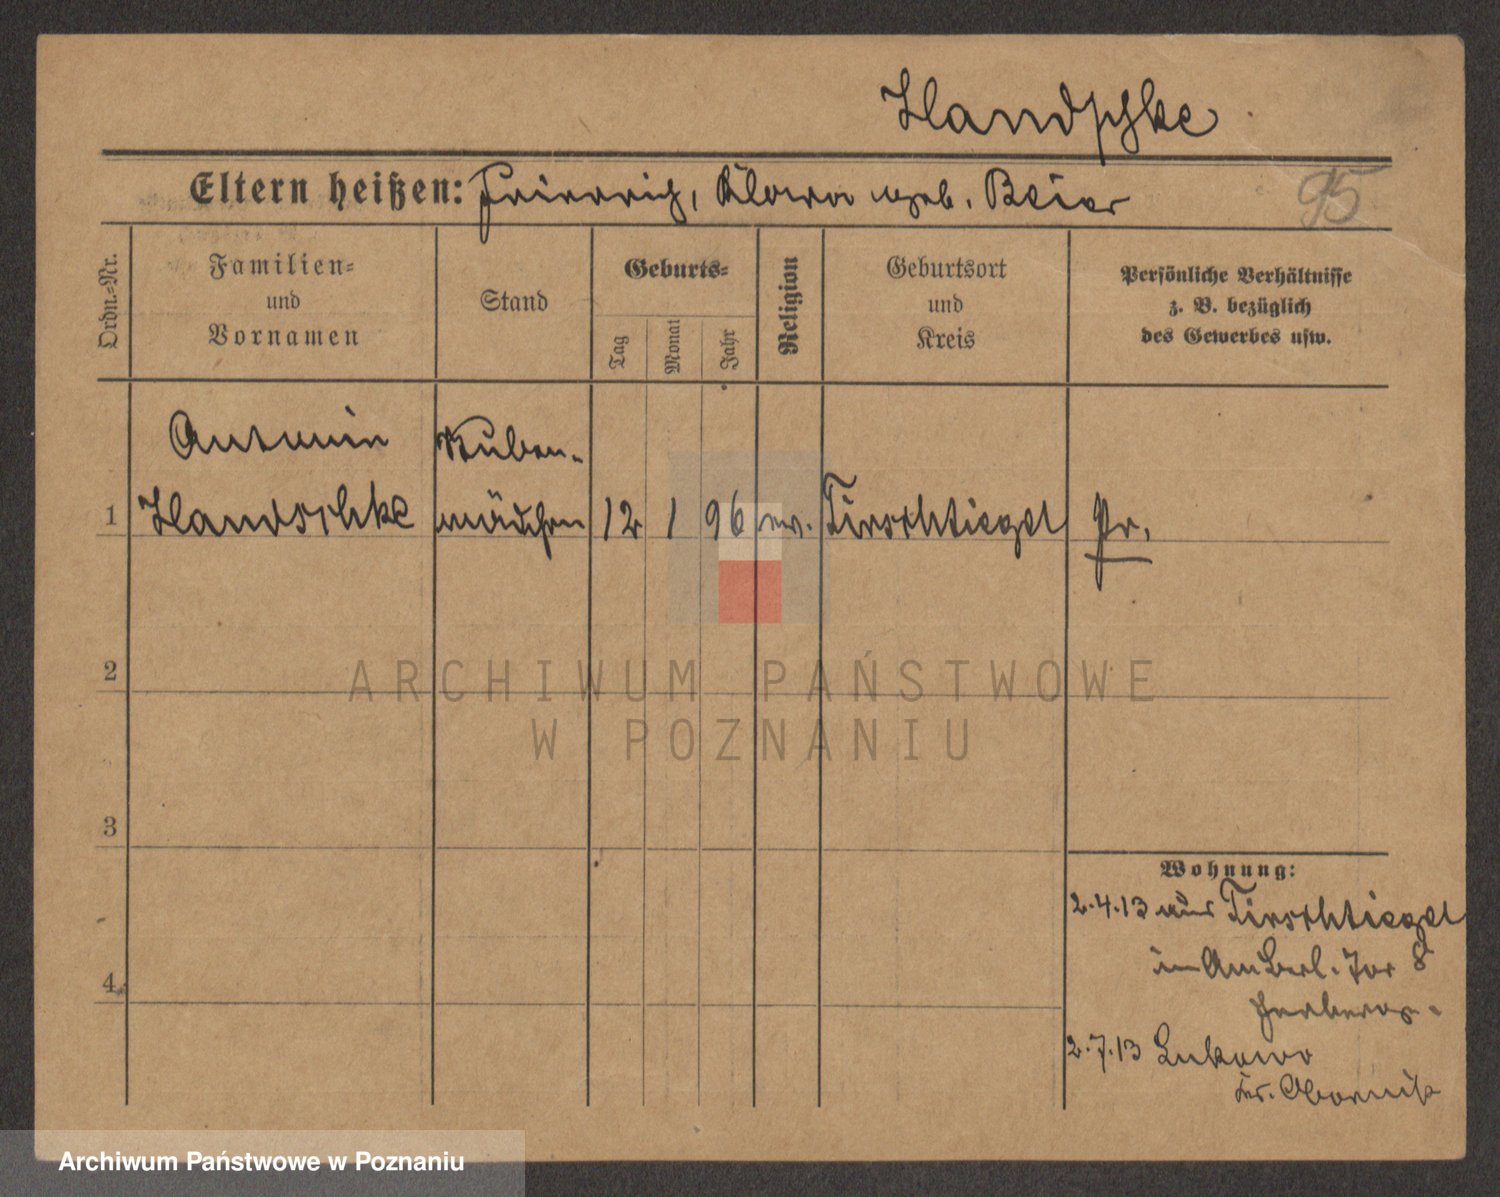 Handschke
Eltern heißen: Friedrich, Klara geb. Beier
95
Ordn.-Nr.
Familien-
und
Vornamen
Stand
Geburts-
Tag
Monat
Jahr
Religion
Geburtsort
und
Kreis
Persönliche Verhältnisse
z. B. bezüglich
des Gewerbes usw.
Stuben-
1 Handschke mädchen 12 1 96 ev. Tirschtiegel Pr.
2
3
4
Wohnung:
2.4.13 aus Tirschtiegel
Am Berl. Tor 8
2.7.13 Lukowo
Kr. Obornik
ARCHIWUM PAŃSTWOWE
W POZNANIU
Archiwum Państwowe w Poznaniu